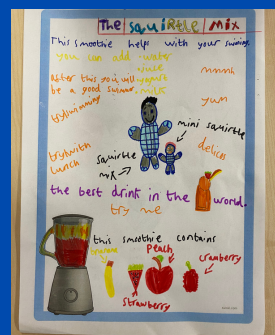 The squirtle mix
This smoothie helps with your swimming.
you can add water
juice
yogurt
milk
mmmh
After this you will
be a good swimmer.
yum
try swimming
mini squirtle
delicos
try with
lunch
squirtle
mix
the best drink in the world.
try me
this smoothie contains
banana
Peach
cranberry
strawberry